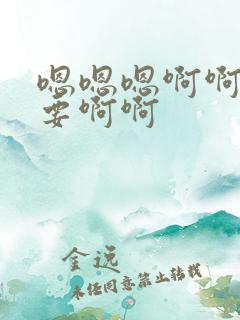 嗯嗯嗯啊啊
要啊啊
金远
未经同意禁止转载